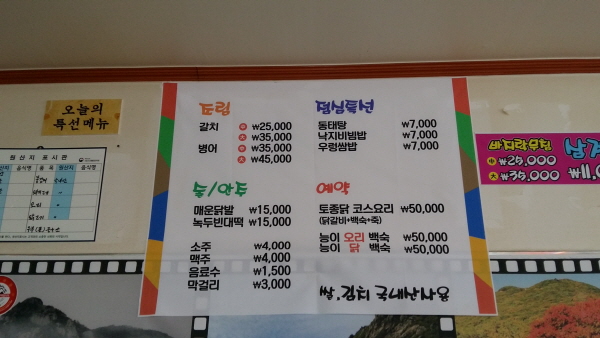 오늘의
특선메뉴
원산지 표시판
조림
갈치 ㊥ ₩25,000
㊛ ₩35,000
병어 ㊥ ₩35,000
㊛ ₩45,000
점심특선
동태탕 ₩7,000
낙지비빔밥 ₩7,000
우렁쌈밥 ₩7,000
술/안주
매운닭발 ₩15,000
녹두빈대떡 ₩15,000
소주 ₩4,000
맥주 ₩4,000
음료수 ₩1,500
막걸리 ₩3,000
예약
토종닭 코스요리 ₩50,000
(닭갈비+백숙+죽)
능이 오리 백숙 ₩50,000
능이 닭 백숙 ₩50,000
바지락무침
₩25,000
₩35,000
₩11,0